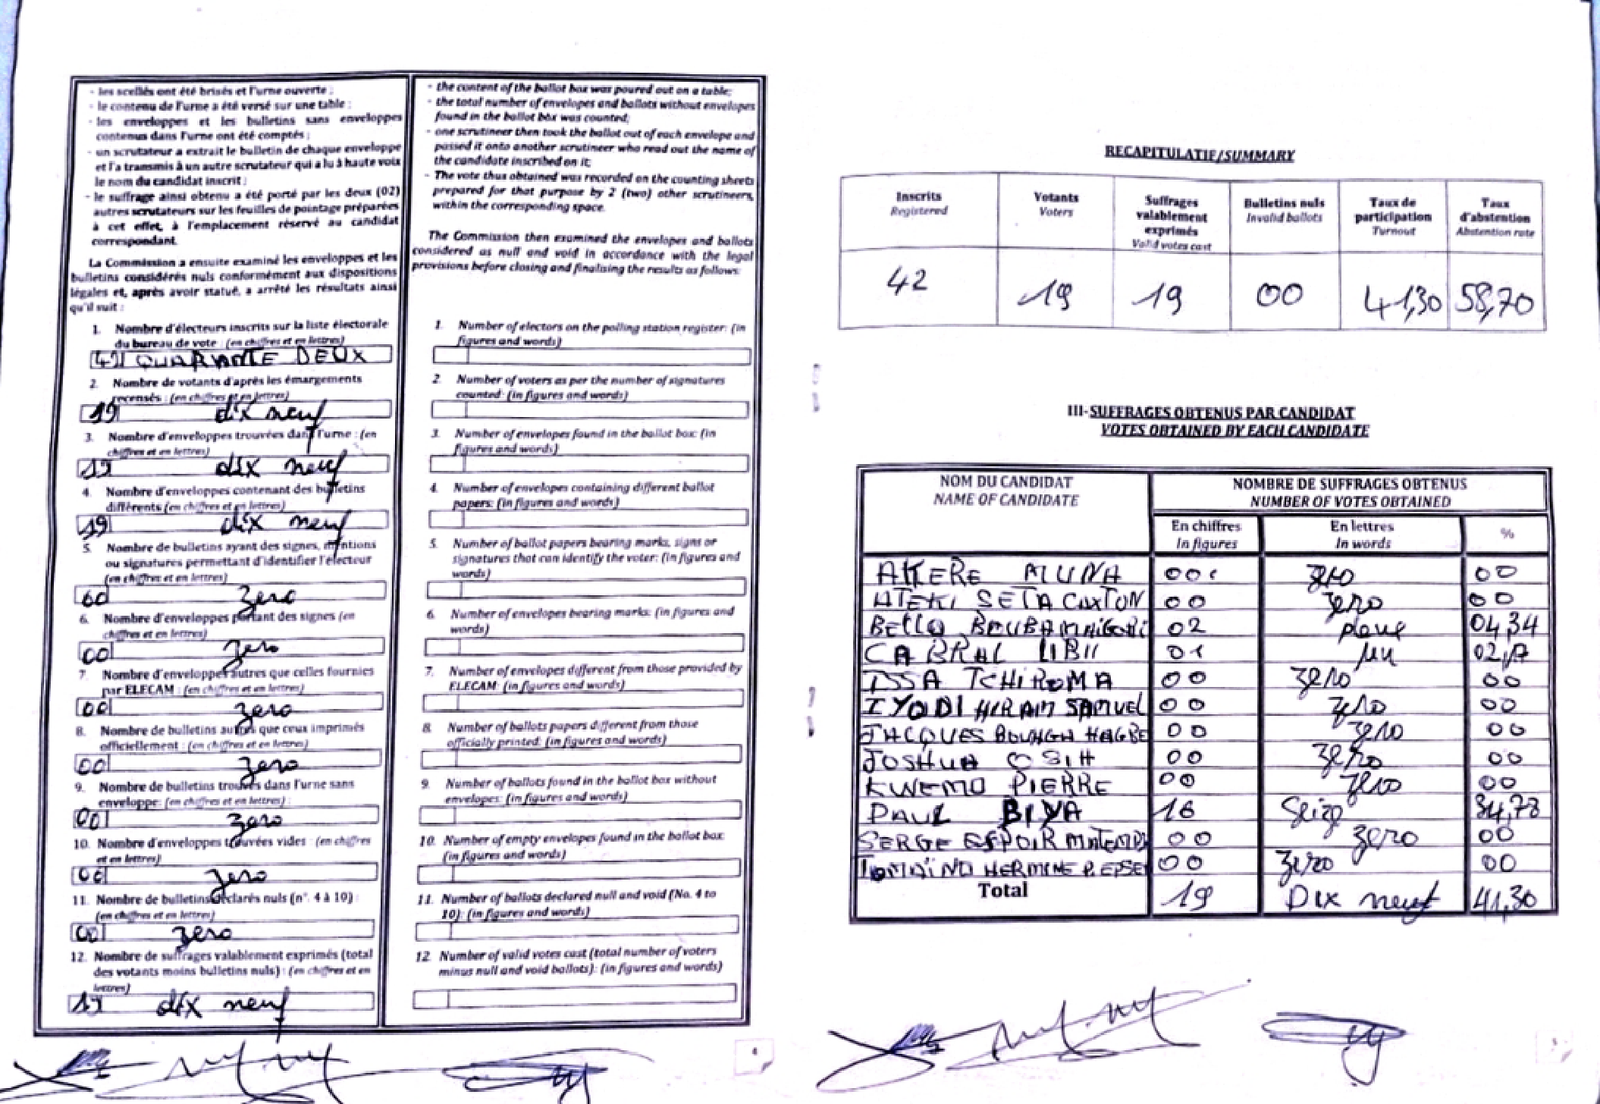 - les scellés ont été brisés et l'urne ouverte ;
- le contenu de l'urne a été versé sur une table ;
- les enveloppes et les bulletins sans enveloppes
contenus dans l'urne ont été comptés ;
- un scrutateur a extrait le bulletin de chaque enveloppe
et l'a transmis à un autre scrutateur qui a lu à haute voix
le nom du candidat inscrit ;
- le suffrage ainsi obtenu a été porté par les deux (02)
autres scrutateurs sur les feuilles de pointage préparées
à cet effet, à l'emplacement réservé au candidat
correspondant.
La Commission a ensuite examiné les enveloppes et les
bulletins considérés nuls conformément aux dispositions
légales et, après avoir statué, a arrêté les résultats ainsi
qu'il suit :
1. Nombre d'électeurs inscrits sur la liste électorale
du bureau de vote : (en chiffres et en lettres)
42 QUARANTE DEUX
2. Nombre de votants d'après les émargements
recensés : (en chiffres et en lettres)
19 dix neuf
3. Nombre d'enveloppes trouvées dans l'urne : (en
chiffres et en lettres)
19 dix neuf
4. Nombre d'enveloppes contenant des bulletins
différents (en chiffres et en lettres)
19 dix neuf
5. Nombre de bulletins ayant des signes, mentions
ou signatures permettant d'identifier l'électeur
(en chiffres et en lettres)
00 zero
6. Nombre d'enveloppes portant des signes (en
chiffres et en lettres)
00 zero
7. Nombre d'enveloppes autres que celles fournies
par ELECAM : (en chiffres et en lettres)
00 zero
8. Nombre de bulletins autres que ceux imprimés
officiellement : (en chiffres et en lettres)
00 zero
9. Nombre de bulletins trouvés dans l'urne sans
enveloppe: (en chiffres et en lettres) :
00 zero
10. Nombre d'enveloppes trouvées vides : (en chiffres
et en lettres)
00 zero
11. Nombre de bulletins déclarés nuls (n°. 4 à 10) :
(en chiffres et en lettres)
00 zero
12. Nombre de suffrages valablement exprimés (total
des votants moins bulletins nuls) : (en chiffres et en
lettres)
19 dix neuf
- the content of the ballot box was poured out on a table;
- the total number of envelopes and ballots without envelopes
found in the ballot box was counted;
- one scrutineer then took the ballot out of each envelope and
passed it onto another scrutineer who read out the name of
the candidate inscribed on it;
- The vote thus obtained was recorded on the counting sheets
prepared for that purpose by 2 (two) other scrutineers,
within the corresponding space.
The Commission then examined the envelopes and ballots
considered as null and void in accordance with the legal
provisions before closing and finalising the results as follows:
1. Number of electors on the polling station register: (in
figures and words)
2. Number of voters as per the number of signatures
counted: (in figures and words)
3. Number of envelopes found in the ballot box: (in
figures and words)
4. Number of envelopes containing different ballot
papers: (in figures and words)
5. Number of ballot papers bearing marks, signs or
signatures that can identify the voter: (in figures and
words)
6. Number of envelopes bearing marks: (in figures and
words)
7. Number of envelopes different from those provided by
ELECAM: (in figures and words)
8. Number of ballots papers different from those
officially printed: (in figures and words)
9. Number of ballots found in the ballot box without
envelopes: (in figures and words)
10. Number of empty envelopes found in the ballot box:
(in figures and words)
11. Number of ballots declared null and void (No. 4 to
10): (in figures and words)
12. Number of valid votes cast (total number of voters
minus null and void ballots): (in figures and words)
RECAPITULATIF/SUMMARY
Inscrits Registered
Votants Voters
Suffrages valablement exprimés Valid votes cast
Bulletins nuls Invalid ballots
Taux de participation Turnout
Taux d'abstention Abstention rate
42 19 19 00 41,30 58,70
III- SUFFRAGES OBTENUS PAR CANDIDAT
VOTES OBTAINED BY EACH CANDIDATE
NOM DU CANDIDAT
NAME OF CANDIDATE
NOMBRE DE SUFFRAGES OBTENUS
NUMBER OF VOTES OBTAINED
En chiffres In figures
En lettres In words
%
ATERE MUNA 00 zero 00
ATEKI SETA CAXTON 00 zero 00
BELLO BOUBA MAIGARI 02 deux 04,34
CABRAL LIBII 01 un 02,17
ISSA TCHIROMA 00 zero 00
IYODI HIRAM SAMUEL 00 zero 00
JACQUES BOUGHA HAGBE 00 zero 00
JOSHUA OSIH 00 zero 00
KWEMO PIERRE 00 zero 00
PAUL BIYA 16 Seize 34,78
SERGE ESPOIR MATOMBA 00 zero 00
TOMAINO HERMINE P. 00 zero 00
Total 19 Dix neuf 41,30